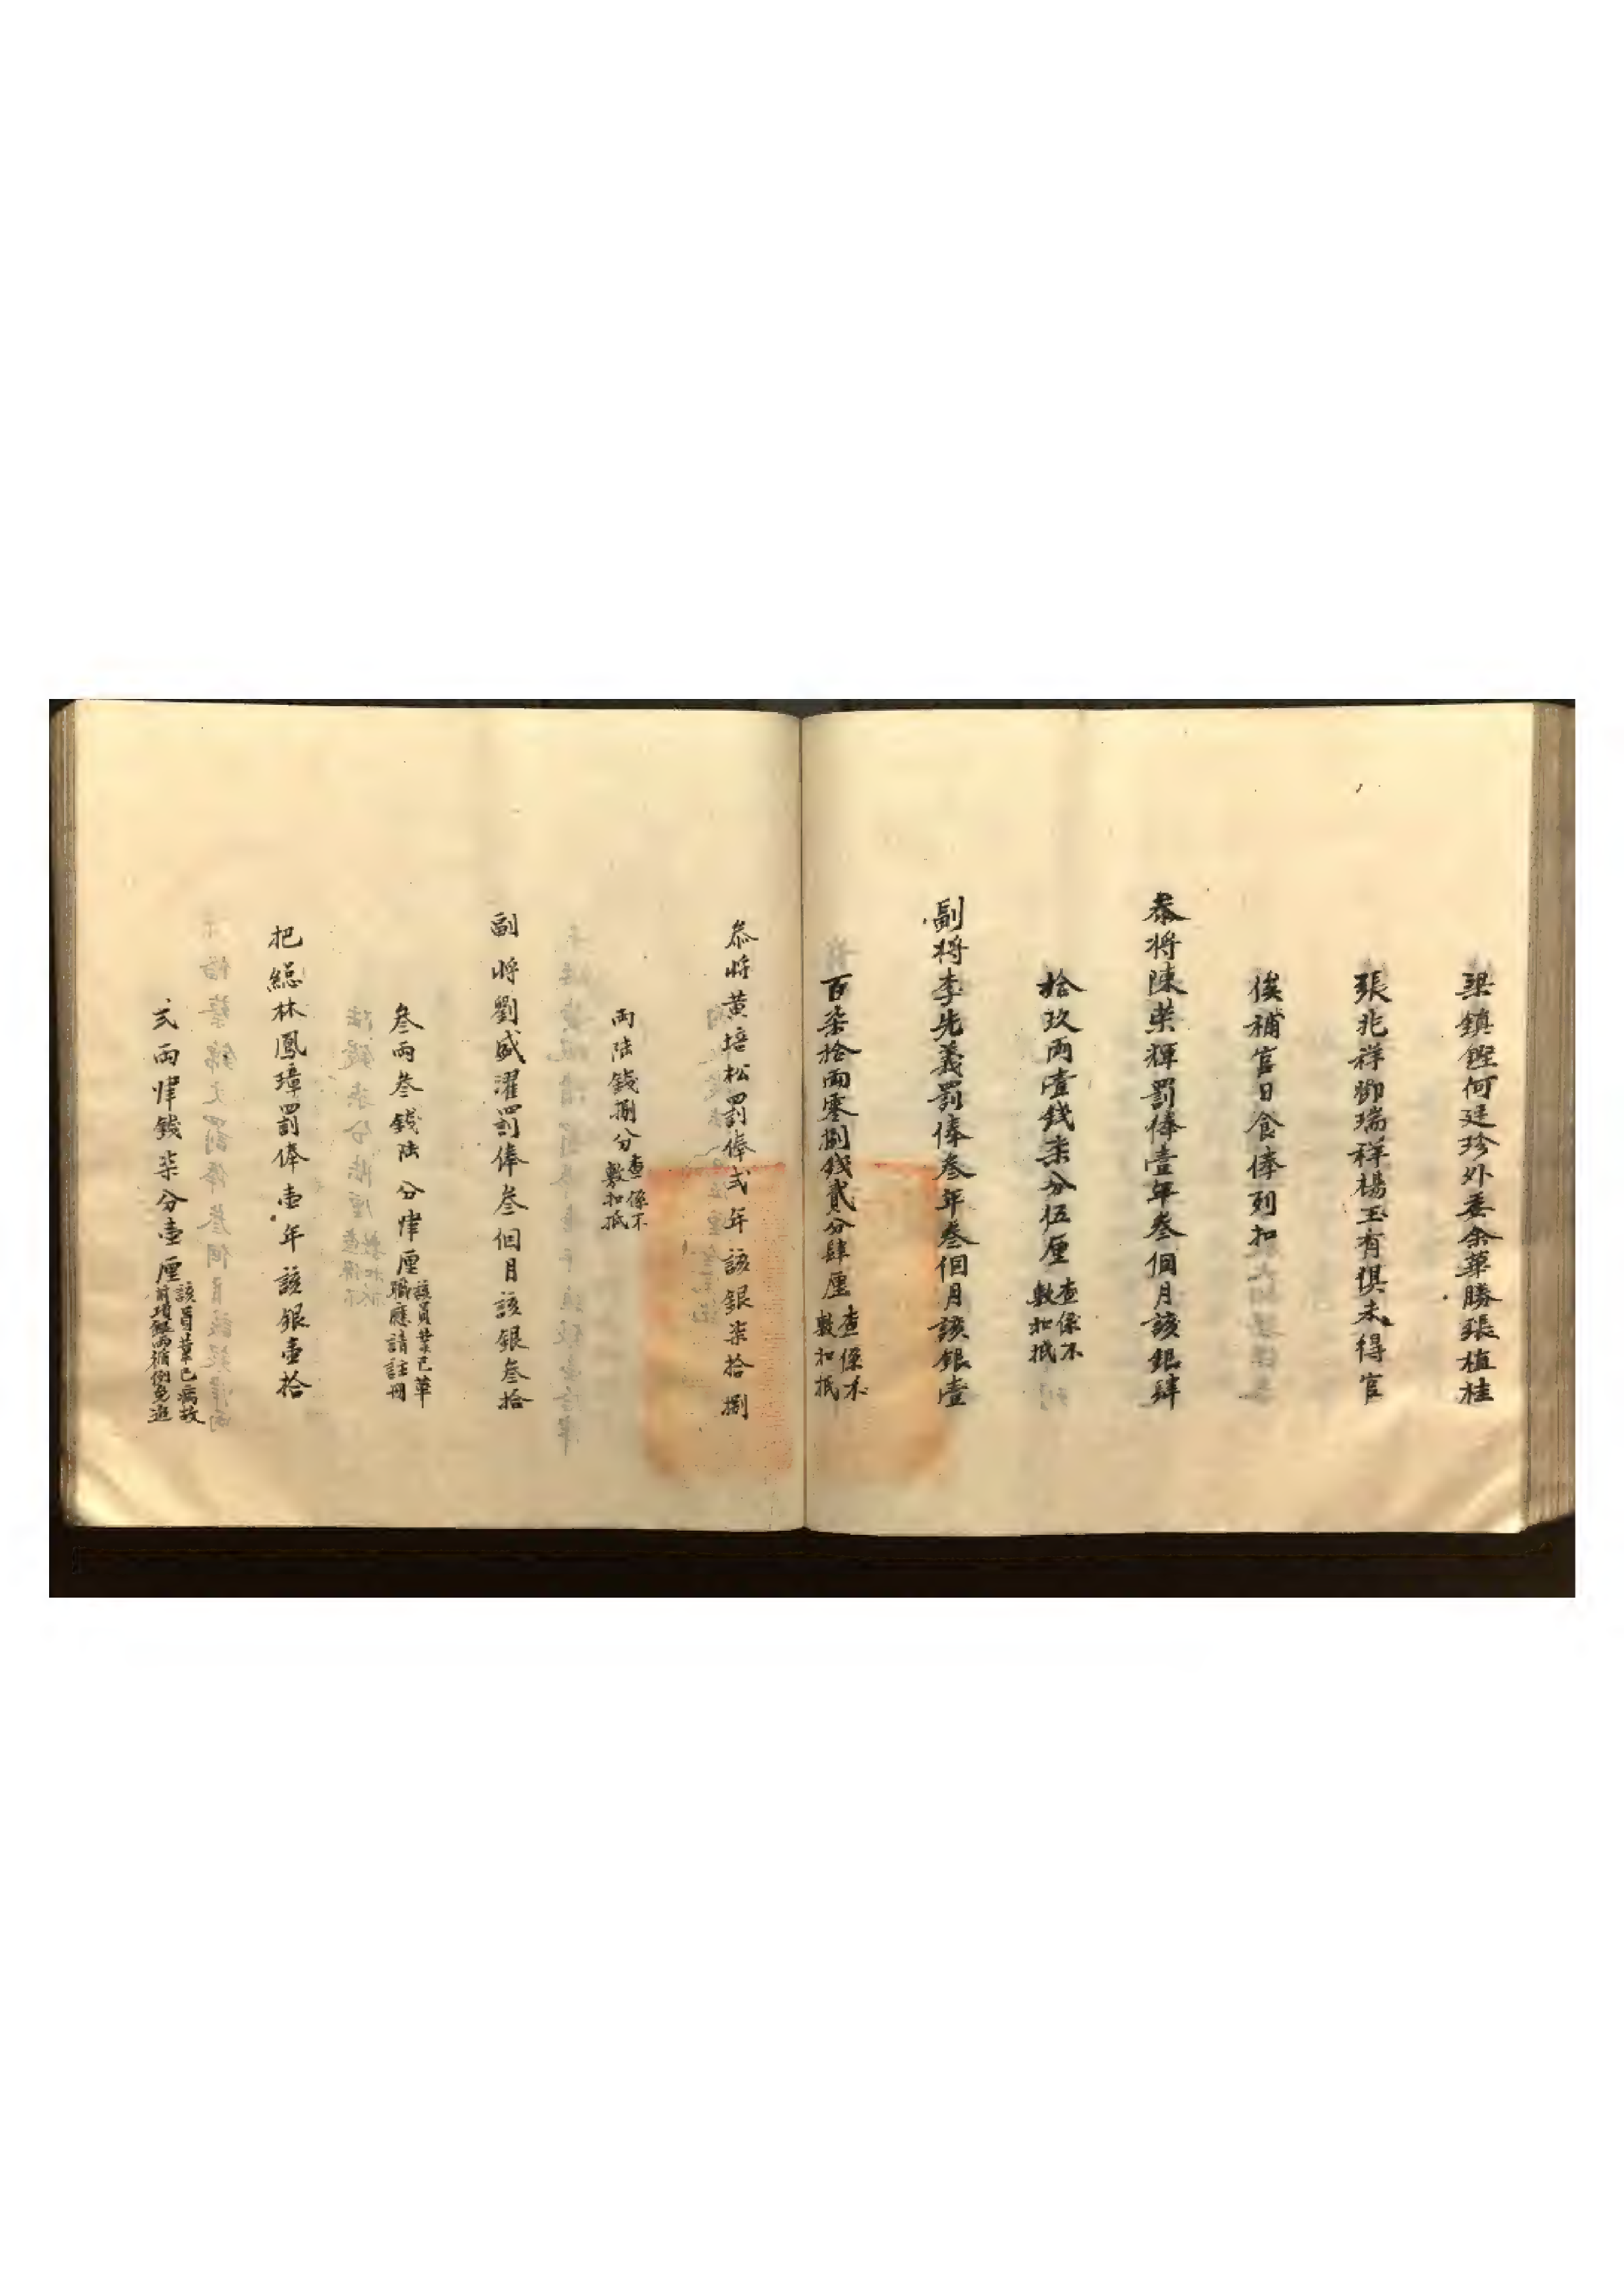 梁鎮鏗何廷珍外委余華勝張植桂
張兆祥鄧瑞祥楊玉有俱未得官
俟補官日食俸列扣
叅将陳榮輝罰俸壹年叁個月該銀肆
拾玖両壹錢柒分伍厘查係不敷扣抵
副将李先義罰俸叁年叁個月該銀壹
百柒拾両零捌錢貳分肆厘查係不敷扣抵
叅将黄培松罰俸弍年該銀柒拾捌
両陆錢捌分查係不敷扣抵
副将劉盛濯罰俸叁個月該銀叁拾
叁両叁錢陆分肆厘該員業已革職應請註冊
把總林鳳璋罰俸壹年該銀壹拾
弍両肆錢柒分壹厘該員業已病故前項銀両循例免追